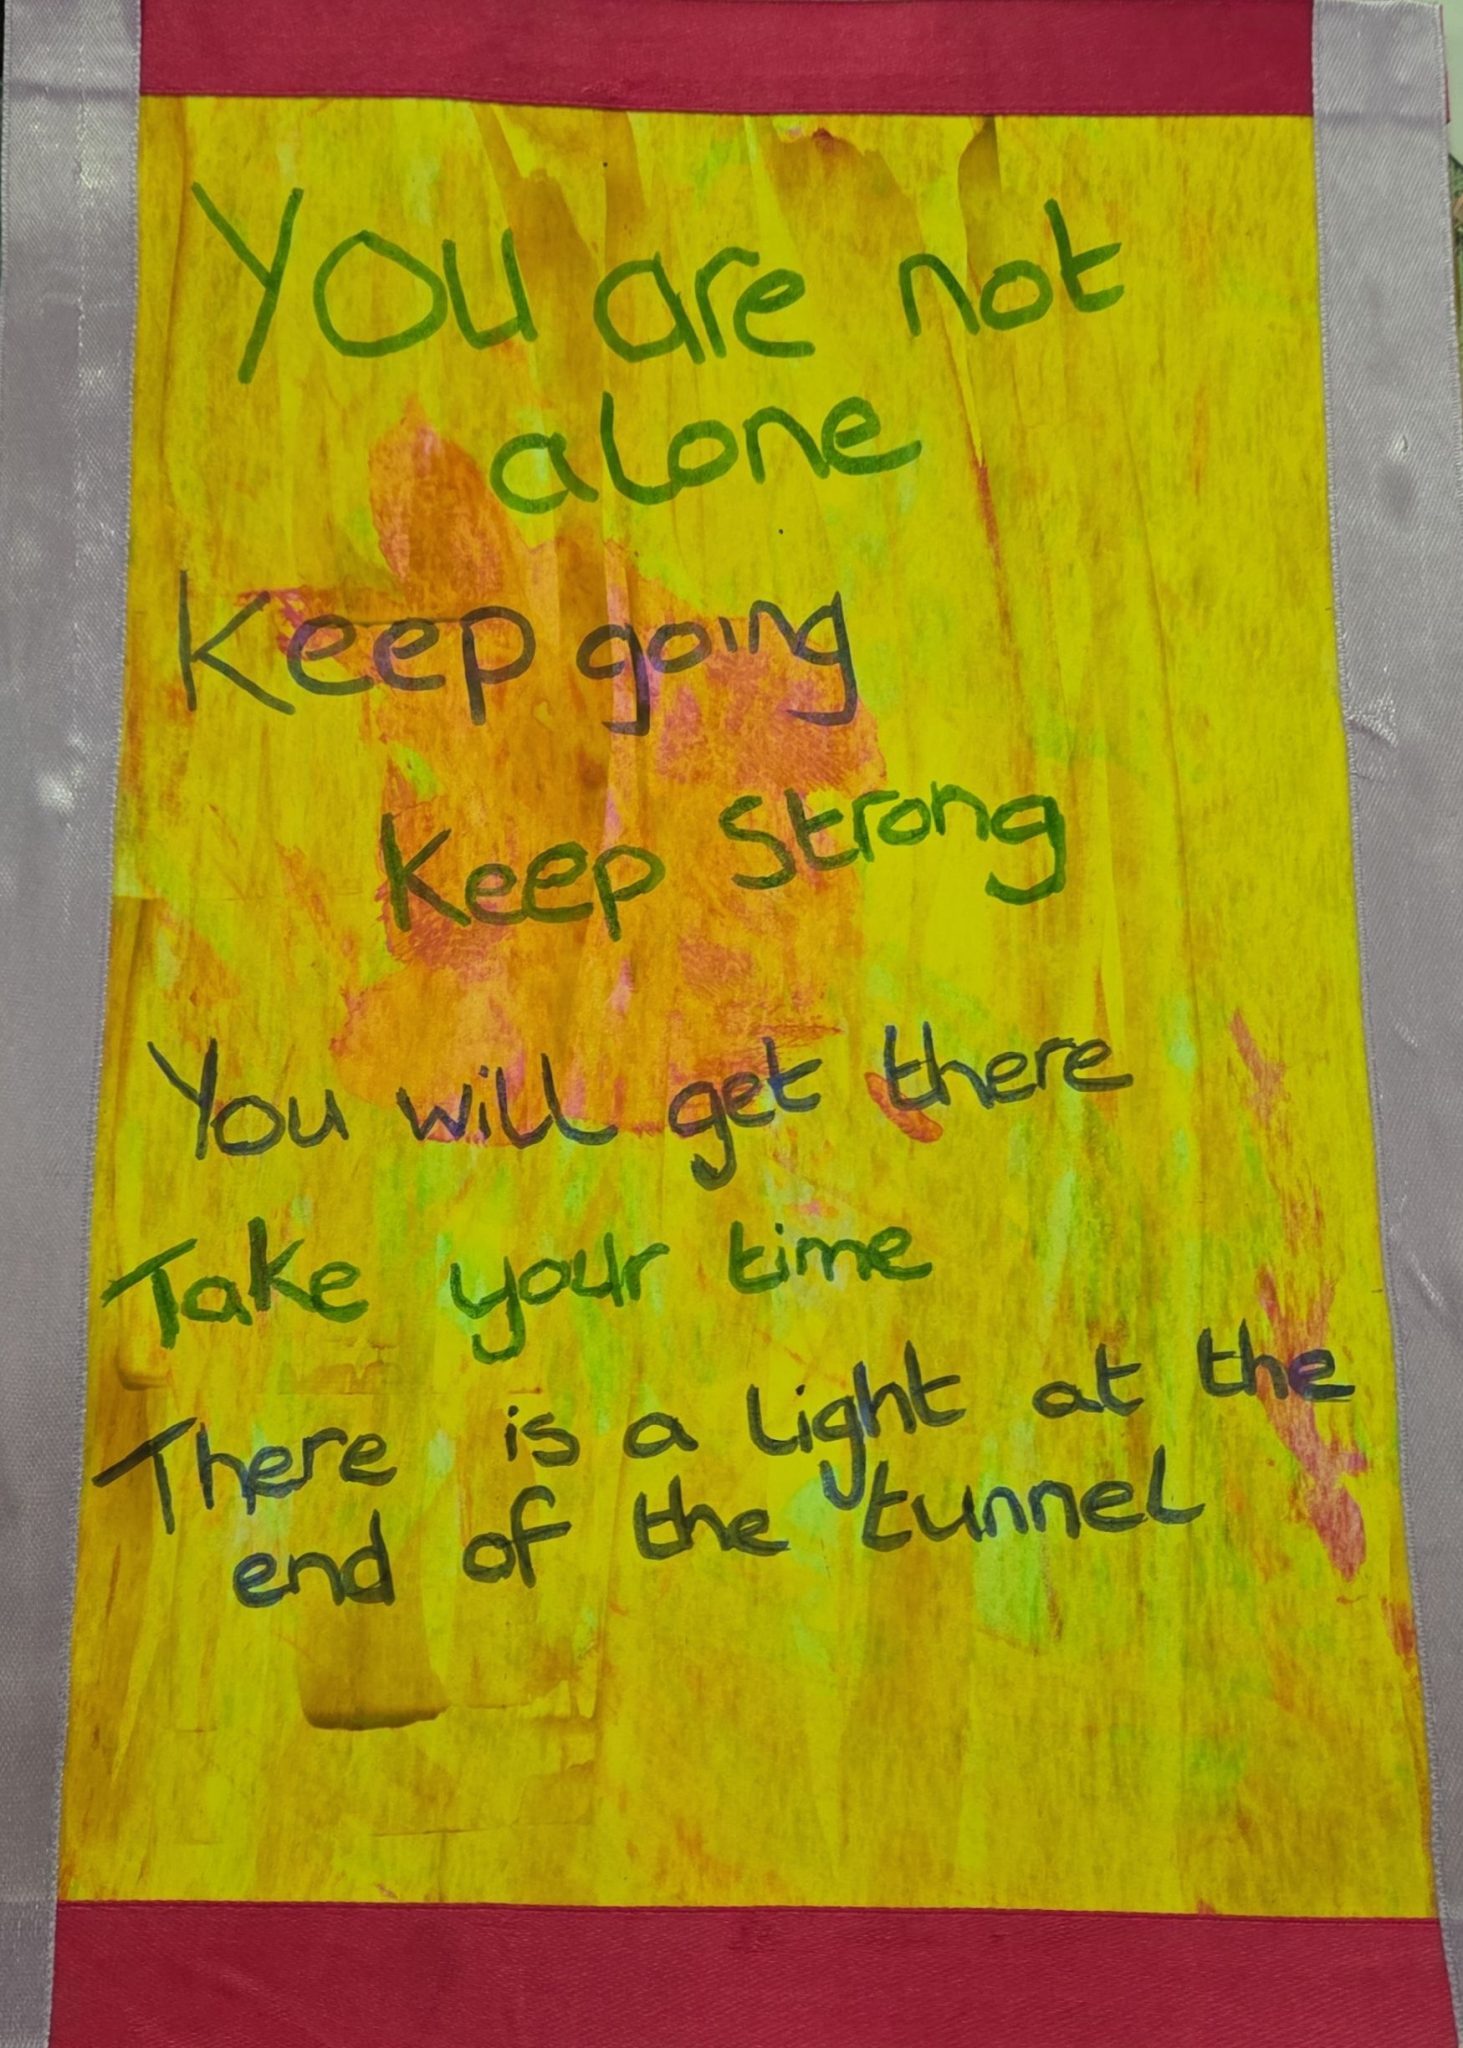 You are not
alone
Keep going
Keep Strong
You will get there
Take your time
There is a light at the
end of the tunnel